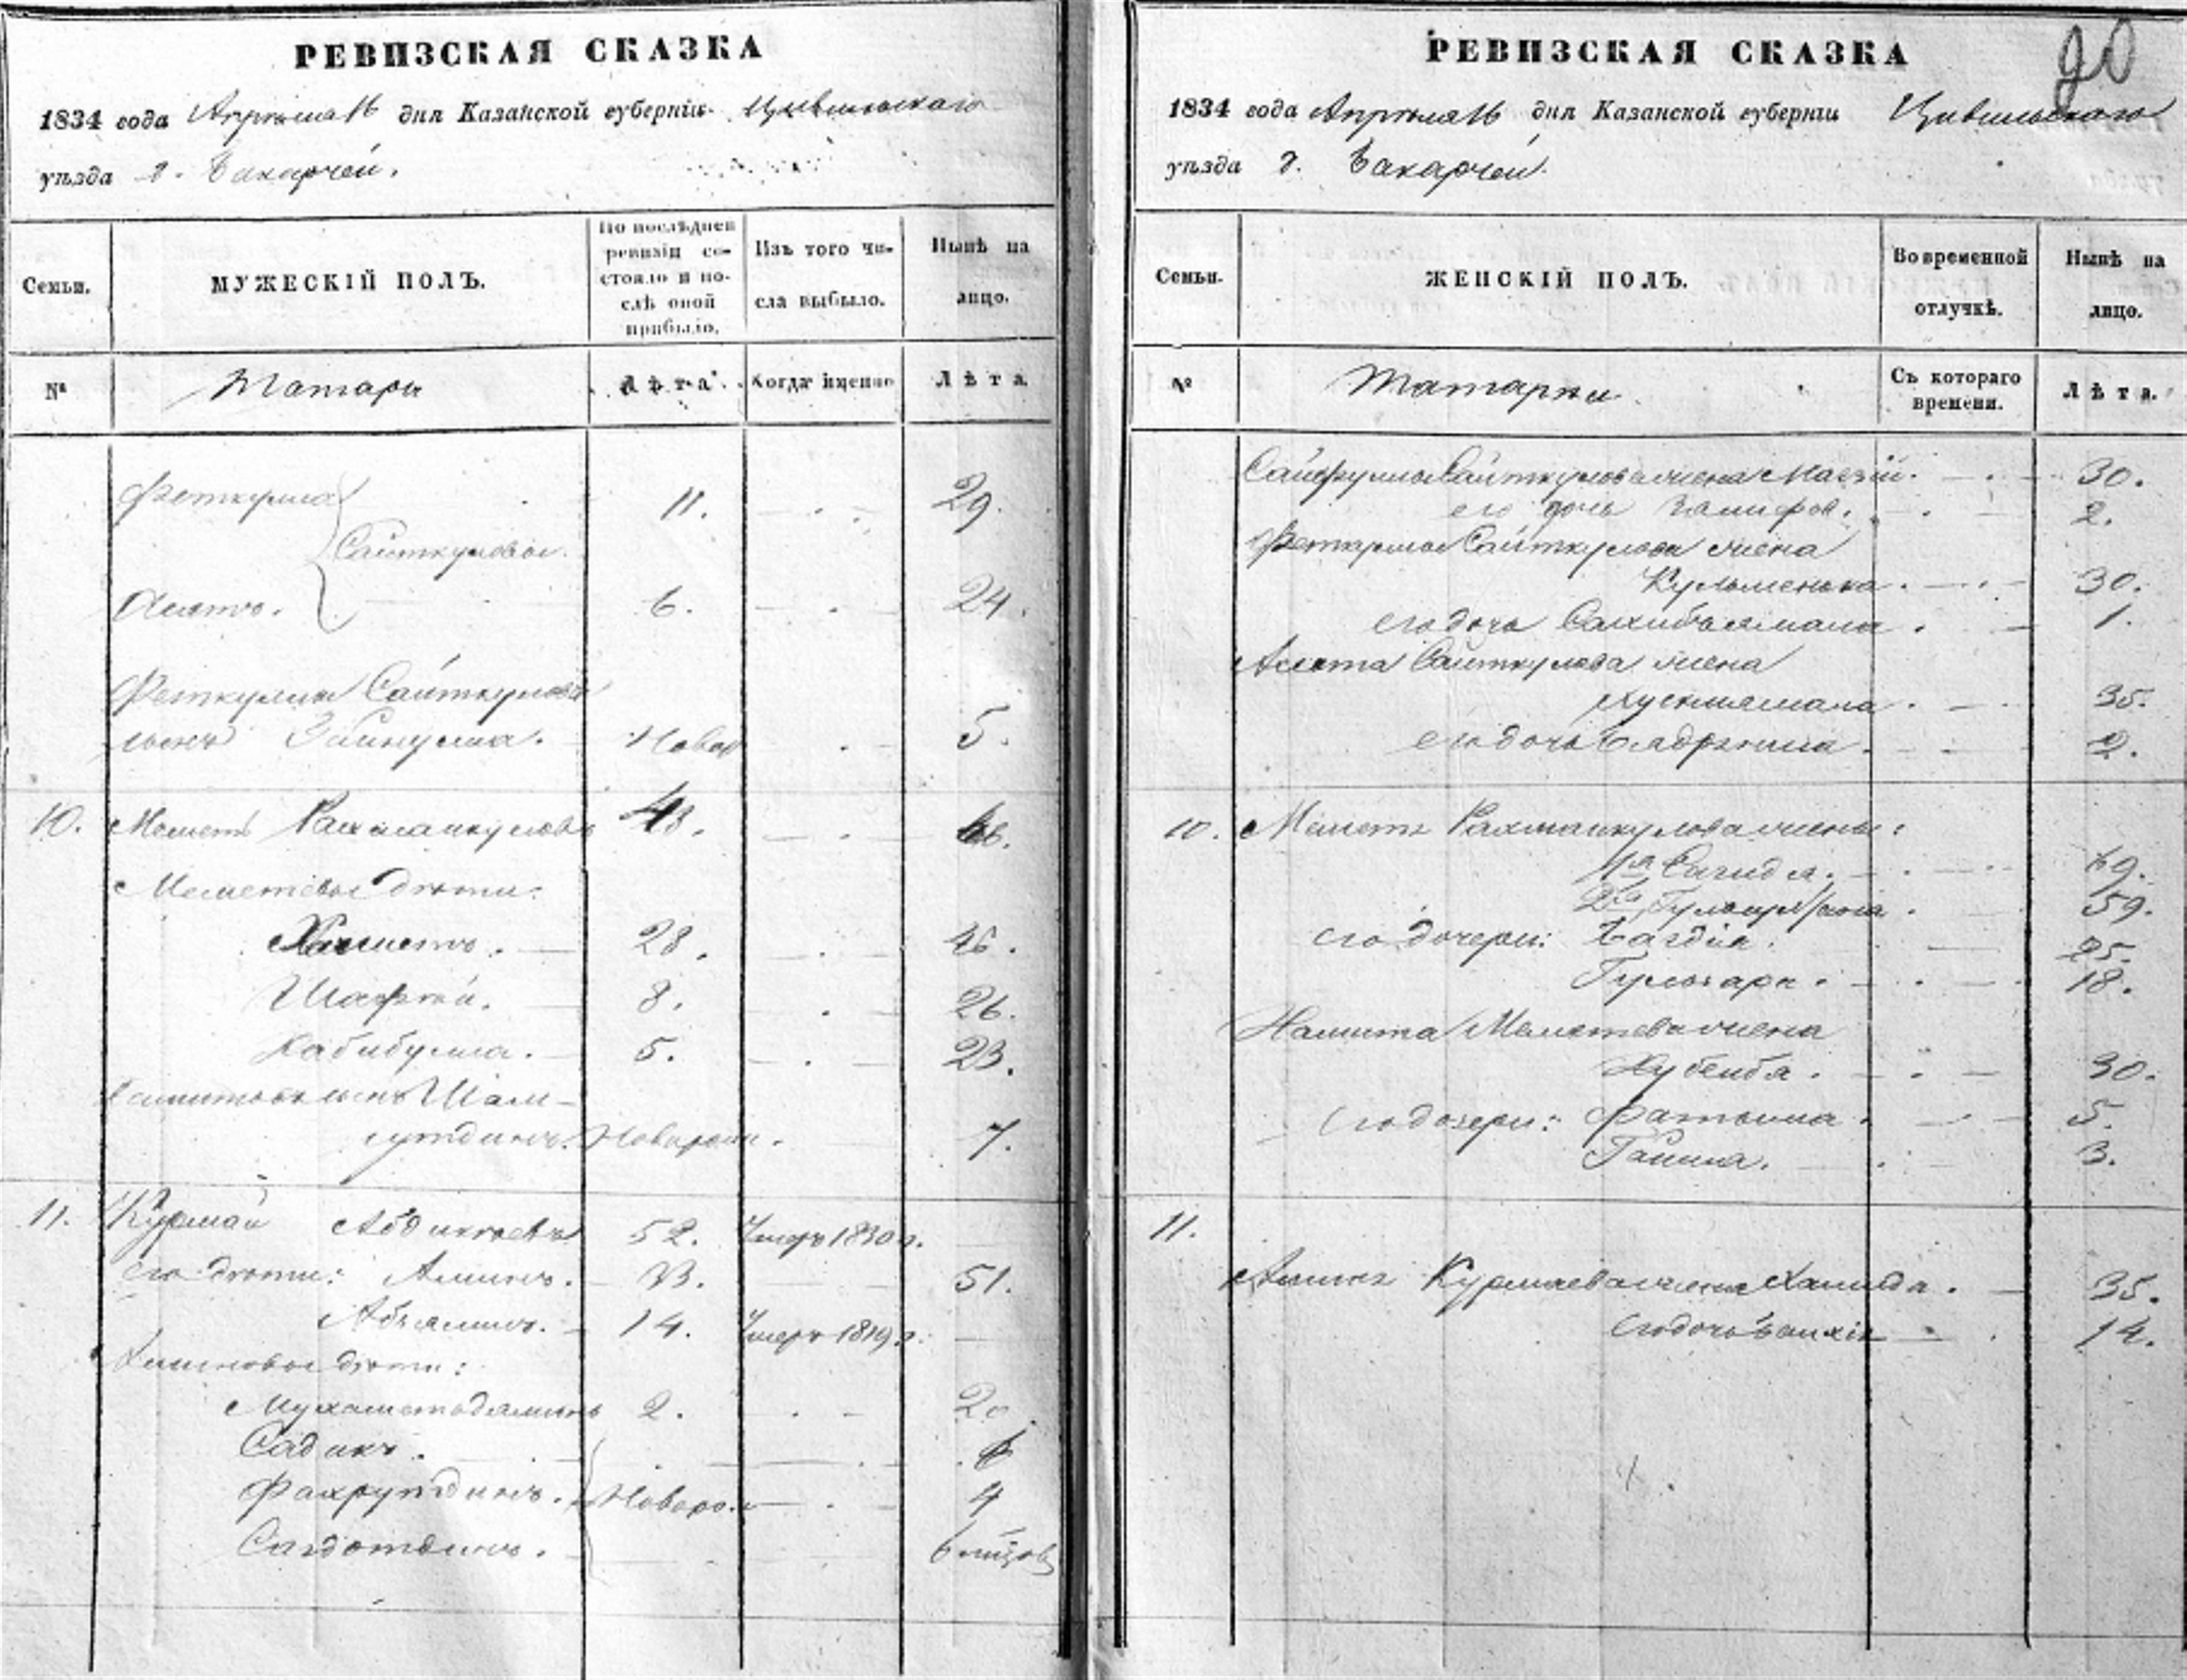 РЕВИЗСКАЯ СКАЗКА
1834 года Апреля 16 дня Казанской губерніи Цивильскаго
уѣзда д. Бакарчей.
Семьи.
МУЖЕСКІЙ ПОЛЪ.
По послѣдней ревизіи состояло и послѣ оной прибыло.
Изъ того числа выбыло.
Нынѣ на лицо.
№
Татары
Лѣта.
Когда именно
Лѣта
Феткулла 11. 29.
Сайткуловы.
Асятъ. 6. 24.
Феткуллы Сайткулова
сынъ Зайнулла. Новор 5.
10. Меметь Рахманкуловъ 48. 66.
Меметевы дѣти:
Хаметъ. 28. 46.
Шафѣй. 8. 26.
Хабибулла. 5. 23.
сынъ Шам-
сутдинъ. Новорож. 7.
11. Курмай 52. Умеръ 1830 г.
Его дѣти: Аминъ. 33. 51.
14. Умеръ 1819 г.
Аминовы дѣти:
Мухаметъаминъ 2. 20.
Садикъ. 6
Фахрутдинъ. Новорож 4
6 мѣсяцов
РЕВИЗСКАЯ СКАЗКА
90
1834 года Апреля 16 дня Казанской губерніи Цивильскаго
уѣзда д. Бакарчей.
Семьи.
ЖЕНСКІЙ ПОЛЪ.
Во временной отлучкѣ.
Нынѣ на лицо.
№
Татарки
Съ котораго времени.
Лѣта.
Сайфуллы Сайткулова жена 30.
его дочь 2.
Феткуллы Сайткулова жена
30.
его дочь Сахибъямала. 1.
Асята Сайткулова жена
Хусниямала. 35.
его дочь Бадрениса. 2.
10. Меметя Рахманкулова жены:
1я Сагида. 69.
2я 59.
его дочери: 25.
18.
Хамита Меметева жена
Хубейбя. 30.
его дочери: Фатыма. 5.
3.
11.
Аминя Курмаева жена Хамида. 35.
его дочь 14.